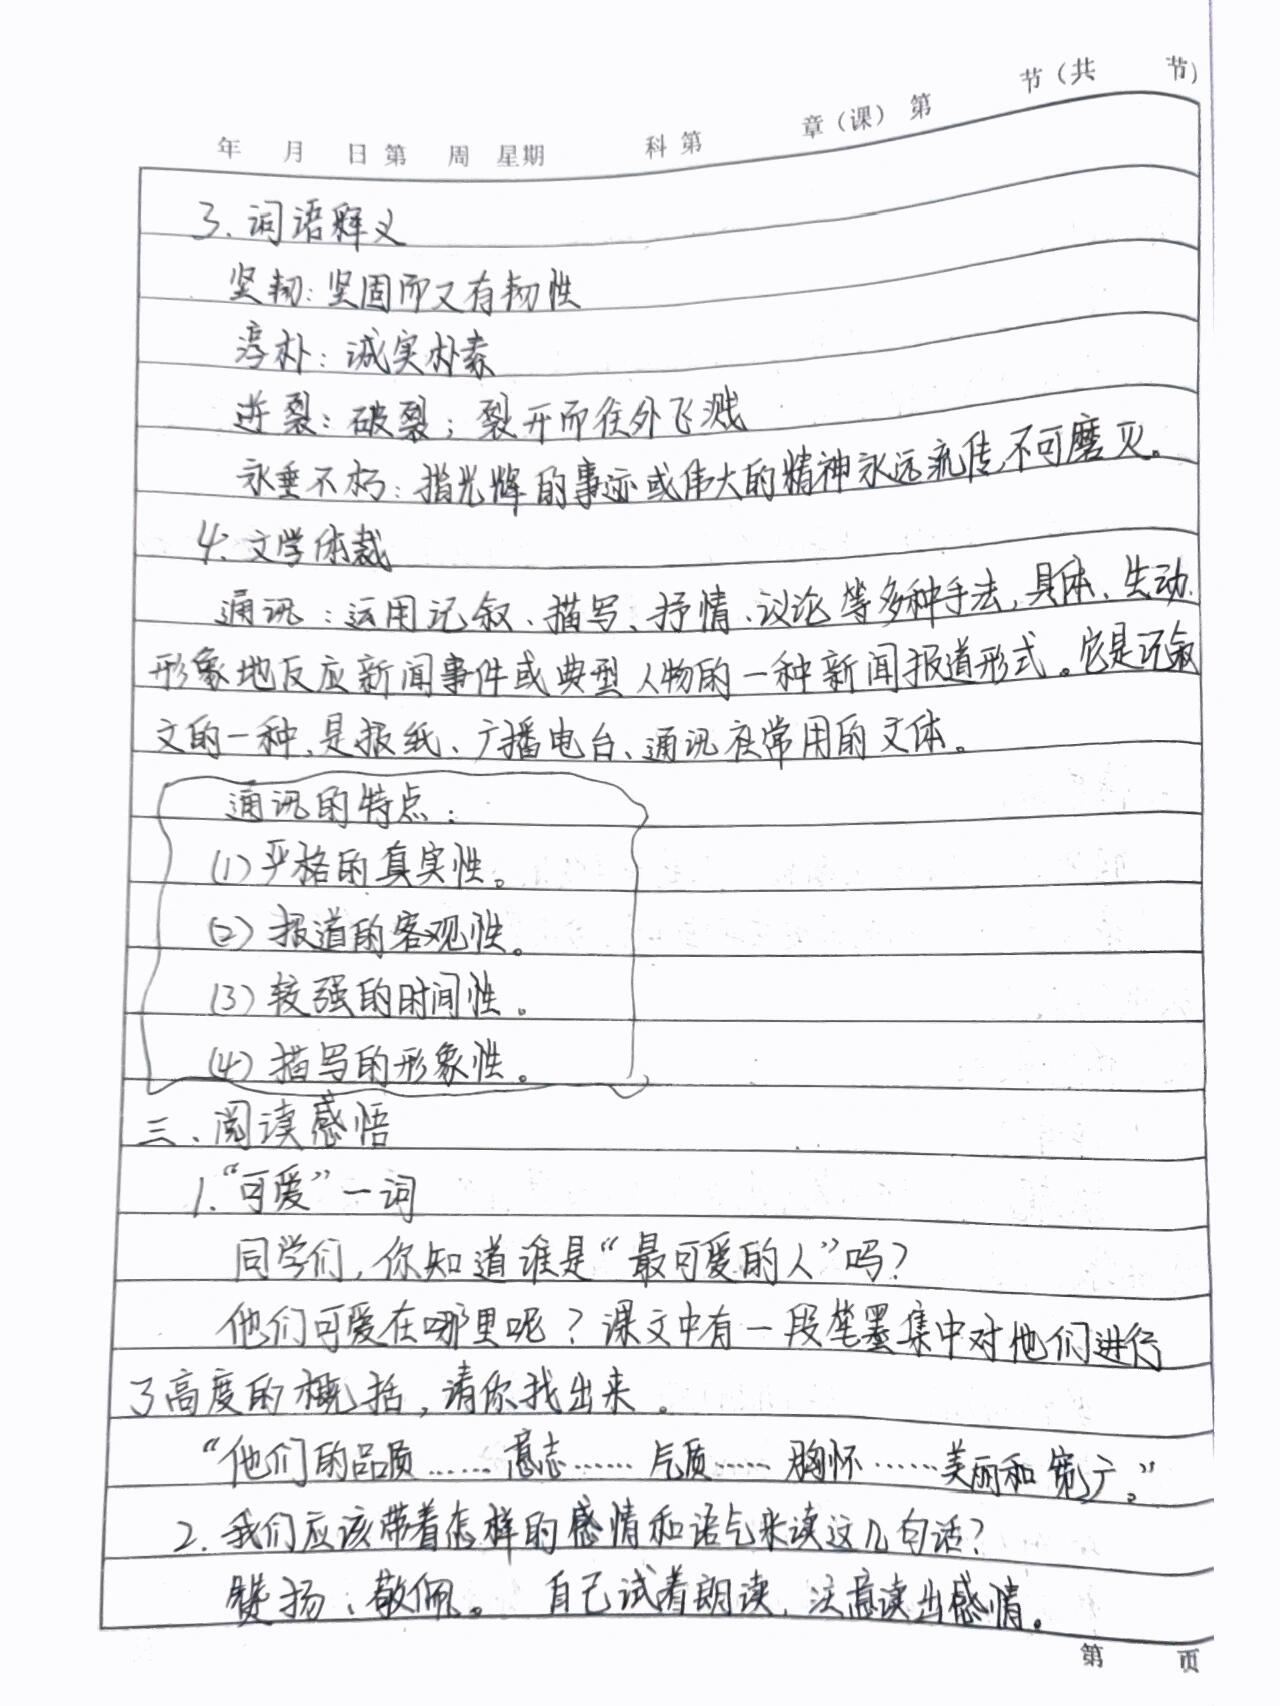 年 月 日 第 周 星期 科 第 章(课) 第 节(共 节)
3. 词语释义
坚韧：坚固而又有韧性
淳朴：诚实朴素
迸裂：破裂；裂开而往外飞溅
永垂不朽：指光辉的事迹或伟大的精神永远流传,不可磨灭。
4. 文学体裁
通讯：运用记叙、描写、抒情、议论等多种手法,具体、生动、
形象地反应新闻事件或典型人物的一种新闻报道形式。它是记叙
文的一种,是报纸、广播电台、通讯社常用的文体。
通讯的特点：
(1)严格的真实性。
(2)报道的客观性。
(3)较强的时间性。
(4)描写的形象性。
三、阅读感悟
1.“可爱”一词
同学们,你知道谁是“最可爱的人”吗?
他们可爱在哪里呢?课文中有一段笔墨集中对他们进行
了高度的概括,请你找出来。
“他们的品质……意志……气质……胸怀……美丽和宽广。”
2.我们应该带着怎样的感情和语气来读这几句话?
赞扬、敬佩。 自己试着朗读,注意读出感情。
第 页